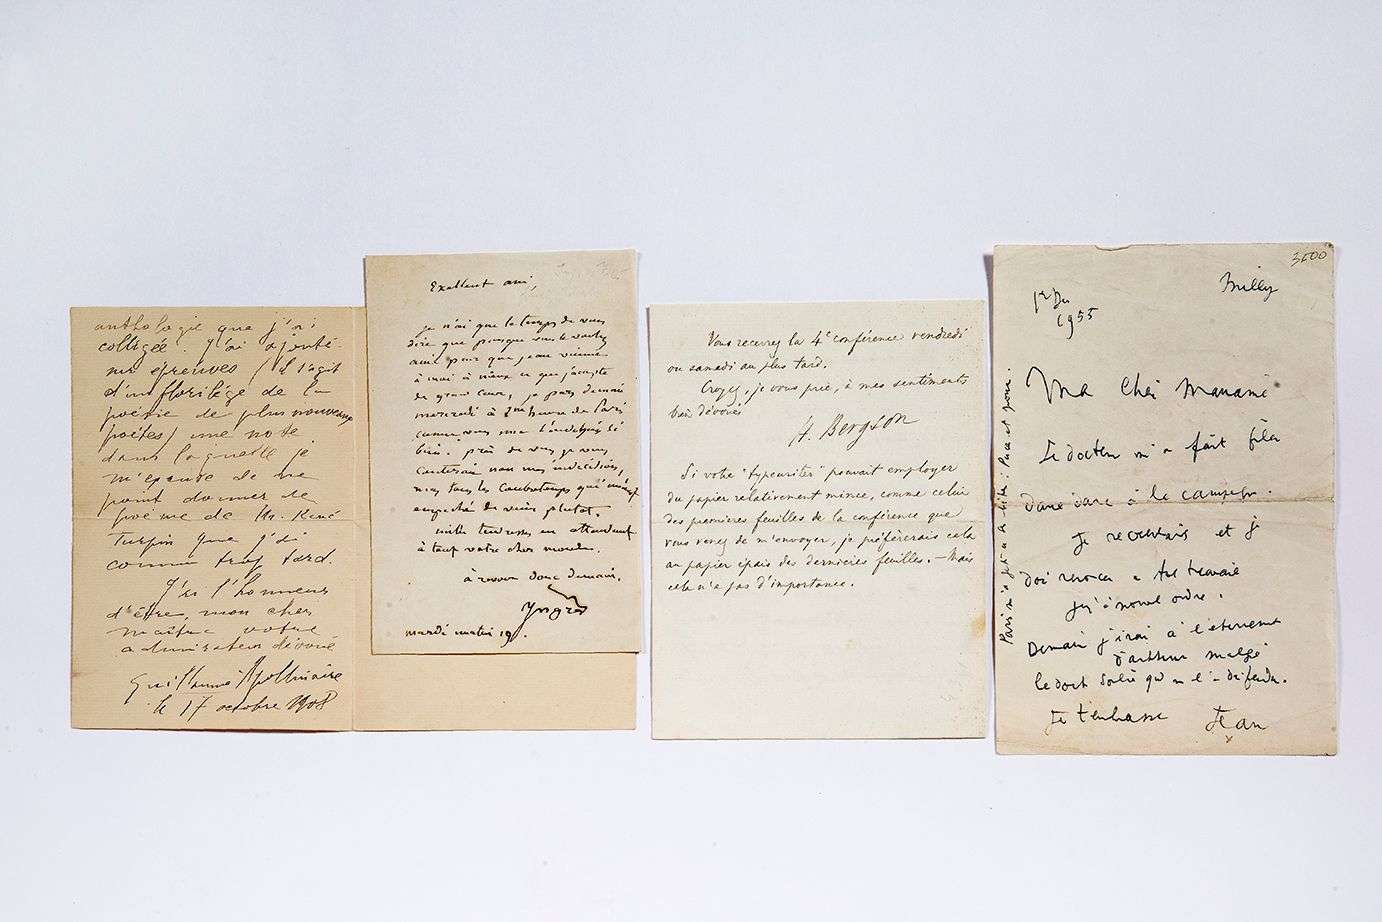 anthologie que j'ai
colligée. J'ai ajouté
aux épreuves (il s'agit
d'un florilège de la
poésie de plus nouveaux
poètes) une note
dans laquelle je
m'excuse de ne
point donner de
poème de M. René
Turpin que j'ai
connu trop tard.
J'ai l'honneur
d'être, mon cher
maître votre
admirateur dévoué
Guillaume Apollinaire
le 17 octobre 1908
Excellent ami,
je n'ai que le temps de vous
dire que puisque vous le voulez
ainsi pour que j'en vienne
à moi à mieux ce que j'accepte
de grand coeur, je pars demain
mercredi à heure de Paris
comme vous me l'indiquez si
bien. près de vous je vous
conterai non mes indécisions,
mais tous les contretemps qui m'ont
empêché de venir plutot.
mille tendresses en attendant
à tout votre cher monde.
à revoir donc demain.
Ingres
mardi matin 19.
Vous recevrez la 4e conférence vendredi
ou samedi au plus tard.
Croyez, je vous prie, à mes sentiments
bien dévoués
H. Bergson
Si votre "typewriter" pouvait employer
du papier relativement mince, comme celui
des premières feuilles de la conférence que
vous venez de m'envoyer, je préférerais cela
au papier épais des dernières feuilles. — Mais
cela n'a pas d'importance.
3500
Milly
1er Du
1955
Ma Chei Mamamé
Le docteur m'a fait filer
dare dare à la campagne.
Je revenais et j
doi renoncer a tut travail
jusqu'à nouvel ordre.
Demain j'irai à l'eterrement
d'arthur malgé
le doct Soulié qui me l'a défendu.
Je t'embrasse Jean
x
Paris m'a jeté a lit.